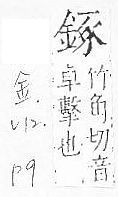 竹角切音
卓擊也
金.
V12.
P9